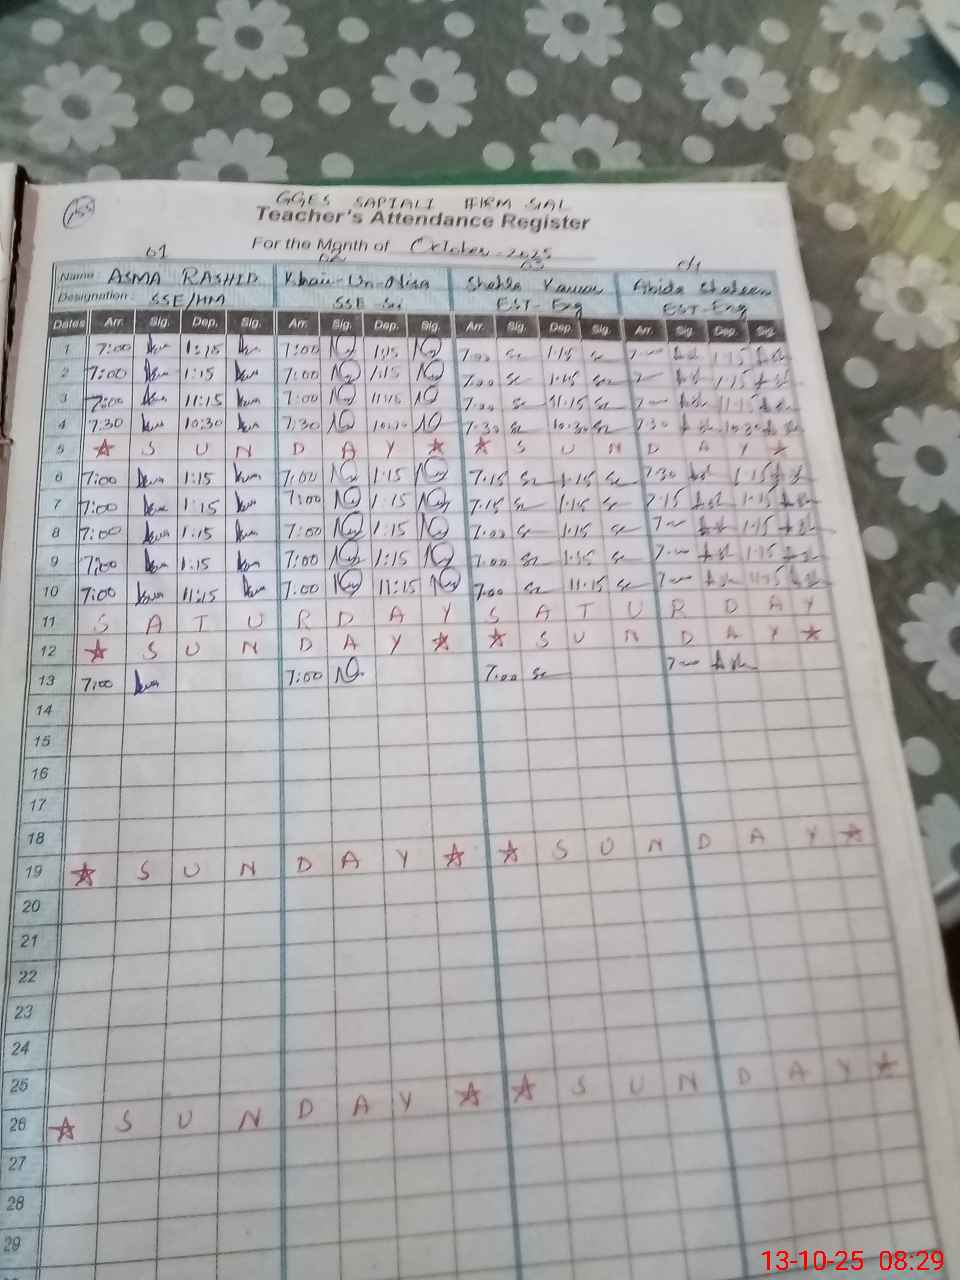 GGES SAPIALI SIAL
Teacher's Attendance Register
For the Month of October-2025
01 02 03 04
Name: ASMA RASHID Khair-Un-Nisa Shehla Abida Shaheen
Designation: SSE/HM SSE-Sci EST-Eng EST-Eng
Dates Arr. Sig. Dep. Sig. Arr. Sig. Dep. Sig. Arr. Sig. Dep. Sig. Arr. Sig. Dep. Sig.
1 7:00 1:15 7:00 1:15 7.00 1.15 1.15
2 7:00 1:15 7:00 1:15 7.00 1.15 1.15
3 7:00 11:15 7:00 11:15 7.00 11.15 11.15
4 7:30 10:30 7:30 10:30 7.30 10.30 7.30 10.30
5 ☆ S U N D A Y ☆ ☆ S U N D A Y ☆
6 7:00 1:15 7:00 1:15 7.15 1.15 7.30 1.15
7 7:00 1:15 7:00 1:15 7.15 1.15 7.15 1.15
8 7:00 1:15 7:00 1:15 7.00 1.15 1.15
9 7:00 1:15 7:00 1:15 7.00 1.15 1.15
10 7:00 11:15 7:00 11:15 7.00 11.15 11.15
11 S A T U R D A Y S A T U R D A Y
12 ☆ S U N D A Y ☆ ☆ S U N D A Y ☆
13 7:00 7:00 7.00
14
15
16
17
18
19 ☆ S U N D A Y ☆ ☆ S U N D A Y ☆
20
21
22
23
24
25
26 ☆ S U N D A Y ☆ ☆ S U N D A Y ☆
27
28
29
13-10-25 08:29